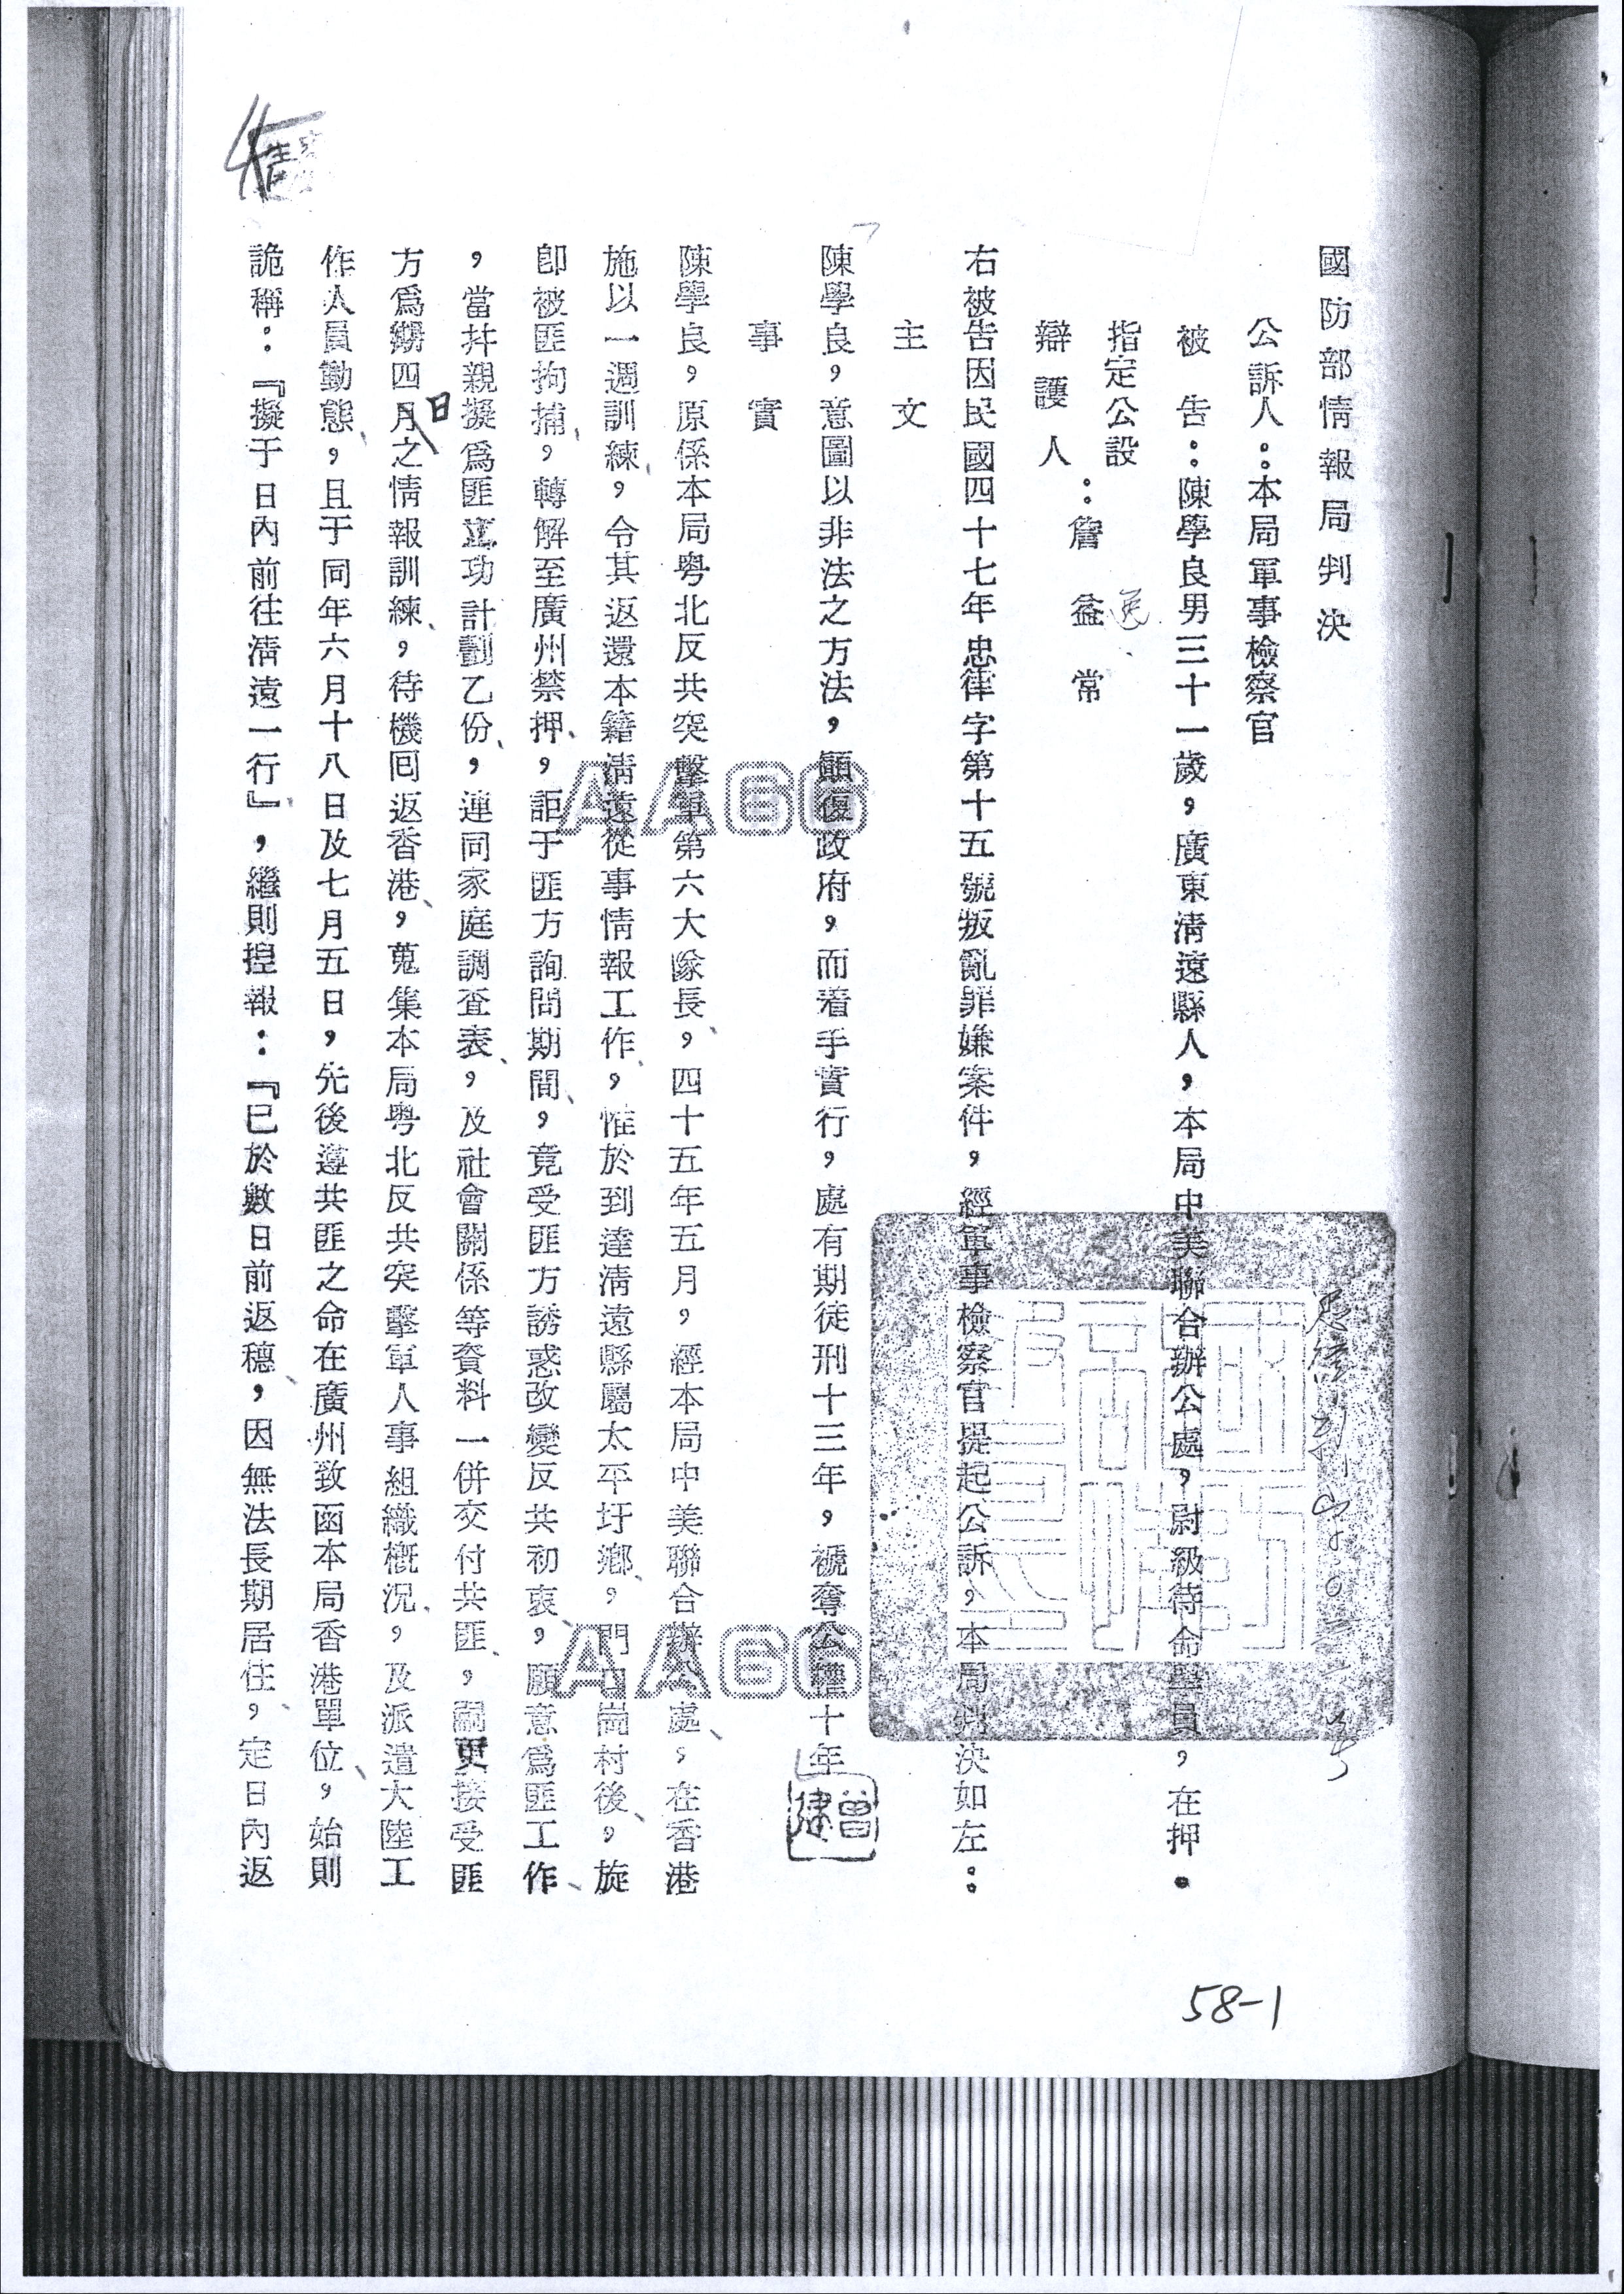 國防部情報局判決
公訴人：本局軍事檢察官
被告：陳學良男三十一歲，廣東清遠縣人，本局中美聯合辦公處，尉級待命學員，在押。
指定公設
辯護人：詹益常
右被告因民國四十七年忠律字第十五號叛亂罪嫌案件，經軍事檢察官提起公訴，本局判決如左：
主文
陳學良，意圖以非法之方法，顛復政府，而着手實行，處有期徒刑十三年，褫奪公權十年
曾建
事實
陳學良，原係本局粵北反共突擊軍第六大隊長，四十五年五月，經本局中美聯合辦公處，在香港
施以一週訓練，令其返還本籍清遠從事情報工作，惟於到達清遠縣屬太平圩鄉，門口崗村後，旋
卽被匪拘捕，轉解至廣州禁押，詎于匪方詢問期間，竟受匪方誘惑改變反共初衷，願意爲匪工作
，當幷親擬爲匪立功計劃乙份，連同家庭調查表，及社會關係等資料一併交付共匪，嗣更接受匪
方爲期四日之情報訓練，待機囘返香港，蒐集本局粵北反共突擊軍人事組織槪況，及派遣大陸工
作人員動態，且于同年六月十八日及七月五日，先後遵共匪之命在廣州致函本局香港單位，始則
詭稱：『擬于日內前往清遠一行』，繼則揑報：『已於數日前返穗，因無法長期居住，定日內返
AA66
AA66
58-1